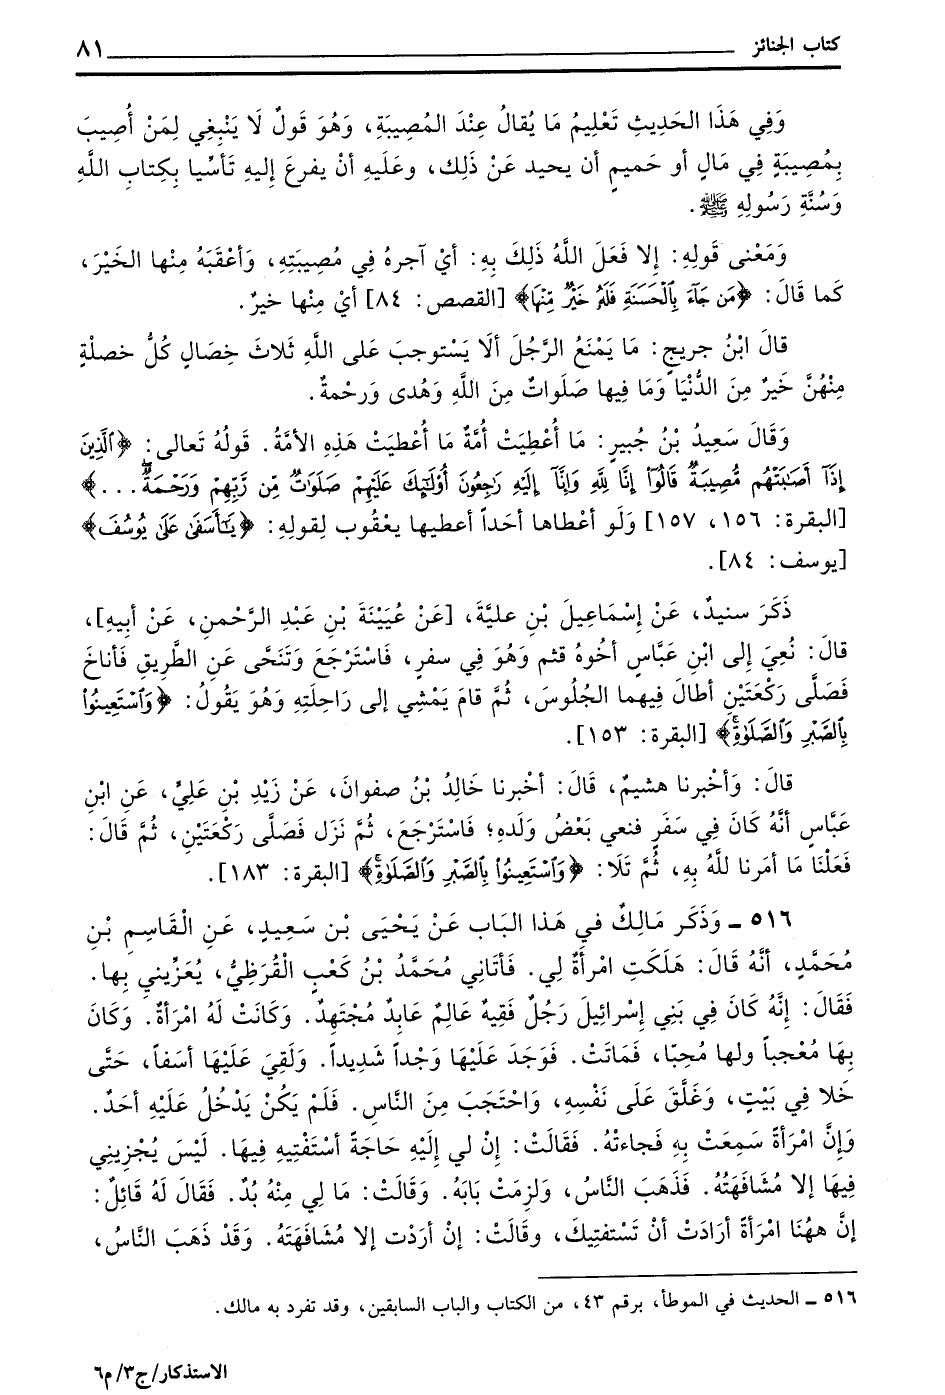 كتاب الجنائز ٨١
وَفِي هَذَا الحَدِيثِ تَعْلِيمُ مَا يُقالُ عِنْدَ المُصِيبَةِ، وَهُوَ قَولٌ لَا يَنْبغِي لِمَنْ أُصِيبَ
بِمُصِيبَةٍ فِي مَالٍ أو حَميمٍ أن يحيد عَنْ ذَلِك، وعَلَيهِ أنْ يفرعَ إليهِ تَأسِّيا بِكِتابِ اللَّهِ
وَسُنَّةِ رَسُولِهِ ﷺ.
وَمَعْنى قَولِهِ: إلا فَعَلَ اللَّهُ ذَلِكَ بِهِ: أيْ آجرهُ فِي مُصِيبَتِهِ، وَأعْقَبَهُ مِنْها الخَيْرَ،
كَما قَالَ: ﴿مَن جَآءَ بِٱلْحَسَنَةِ فَلَهُۥ خَيْرٌ مِّنْهَا﴾ [القصص: ٨٤] أيْ مِنْها خيرٌ.
قالَ ابْنُ جريجٍ: مَا يَمْنَعُ الرَّجُلَ ألَّا يَسْتوجبَ عَلى اللَّهِ ثَلاثَ خِصَالٍ كُلُّ خصلْةٍ
مِنْهُنَّ خَيرٌ مِنَ الدُّنْيَا وَمَا فِيها صَلَواتٌ مِنَ اللَّهِ وَهُدى وَرحْمةٌ.
وَقَالَ سَعِيدُ بْنُ جُبيرٍ: مَا أُعْطِيَتْ أُمَّةٌ مَا أُعْطيَتْ هَذِهِ الأمَّةُ. قَولُهُ تَعالى: ﴿ٱلَّذِينَ
إِذَآ أَصَٰبَتْهُم مُّصِيبَةٌ قَالُوٓا۟ إِنَّا لِلَّهِ وَإِنَّآ إِلَيْهِ رَٰجِعُونَ أُو۟لَٰٓئِكَ عَلَيْهِمْ صَلَوَٰتٌ مِّن رَّبِّهِمْ وَرَحْمَةٌ...﴾
[البقرة: ١٥٦، ١٥٧] وَلَو أعْطاها أحَداً أعطيها يعْقُوب لِقولِهِ: ﴿يَٰٓأَسَفَىٰ عَلَىٰ يُوسُفَ﴾
[يوسف: ٨٤].
ذَكَرَ سنيدٌ، عَنْ إسْمَاعِيلَ بْنِ عليَّةَ، [عَنْ عُيَيْنَةَ بْنِ عَبْدِ الرَّحْمنِ، عَنْ أبيهِ]،
قالَ: نُعِيَ إلى ابْنِ عَبَّاسٍ أخُوهُ قثم وَهُوَ فِي سفرٍ، فَاسْتَرْجَعَ وَتَنَحَّى عَنِ الطَّرِيقِ فَأناخَ
فَصَلَّى رَكْعَتَيْنِ أطالَ فِيهِما الجُلُوسَ، ثُمَّ قامَ يَمْشِي إلى رَاحِلَتِهِ وَهُوَ يَقُولُ: ﴿وَٱسْتَعِينُوا۟
بِٱلصَّبْرِ وَٱلصَّلَوٰةِ﴾ [البقرة: ١٥٣].
قالَ: وَأخْبرنا هشيمٌ، قَالَ: أخْبرنا خَالِدُ بْنُ صفوانَ، عَنْ زَيْدِ بْنِ عَلِيٍّ، عَنِ ابْنِ
عَبَّاسٍ أنَّهُ كَانَ فِي سَفَرٍ فنعي بَعْضُ وَلَدِهِ؛ فَاسْتَرْجَعَ، ثُمَّ نَزَل فَصَلَّى رَكْعَتَيْنِ، ثُمَّ قَالَ:
فَعَلْنَا مَا أمَرنا للَّهُ بِهِ، ثُمَّ تَلَا: ﴿وَٱسْتَعِينُوا۟ بِٱلصَّبْرِ وَٱلصَّلَوٰةِ﴾ [البقرة: ١٨٣].
٥١٦ ـ وَذَكَر مَالِكٌ في هَذا البَاب عَنْ يَحْيَى بْنِ سَعِيدٍ، عَنِ الْقَاسِمِ بْنِ
مُحَمَّدٍ، أنَّهُ قَالَ: هَلَكَتِ امْرأةٌ لِي. فَأتَانِي مُحَمَّدُ بْنُ كَعْبٍ الْقُرَظِيُّ، يُعَزِّيني بِها.
فَقَالَ: إنَّهُ كَانَ فِي بَنِي إسْرائيلَ رَجُلٌ فَقِيهٌ عَالِمٌ عَابِدٌ مُجْتَهِدٌ. وَكَانَتْ لَهُ امْرَأةٌ. وَكَانَ
بِهَا مُعْجباً ولها مُحِبّا، فَمَاتَتْ. فَوَجَدَ عَلَيْهَا وَجْداً شَدِيداً. وَلَقِيَ عَلَيْهَا أسَفاً، حَتَّى
خَلا فِي بَيْتٍ، وَغَلَّقَ عَلَى نَفْسِهِ، وَاحْتَجَبَ مِنَ النَّاسِ. فَلَمْ يَكُنْ يَدْخُلُ عَلَيْهِ أحَدٌ.
وَإنَّ امْرَأةً سَمِعَتْ بِهِ فَجاءتْهُ. فَقَالَتْ: إنْ لي إلَيْهِ حَاجَةً أسْتَفْتِيهِ فِيهَا. لَيْسَ يُجْزِينِي
فِيهَا إلا مُشَافَهَتُهُ. فَذَهَبَ النَّاسُ، وَلزِمَتْ بَابَهُ. وَقَالَتْ: مَا لِي مِنْهُ بُدٌ. فَقَالَ لَهُ قَائِلٌ:
إنَّ ههُنَا امْرأةً أرَادَتْ أنْ تَسْتفتِيكَ، وقَالَتْ: إنْ أرَدْت إلا مُشَافَهَتَهُ. وَقَدْ ذَهَبَ النَّاسُ،
٥١٦ ـ الحديث في الموطأ، برقم ٤٣، من الكتاب والباب السابقين، وقد تفرد به مالك.
الاستذكار/ج٣/م٦